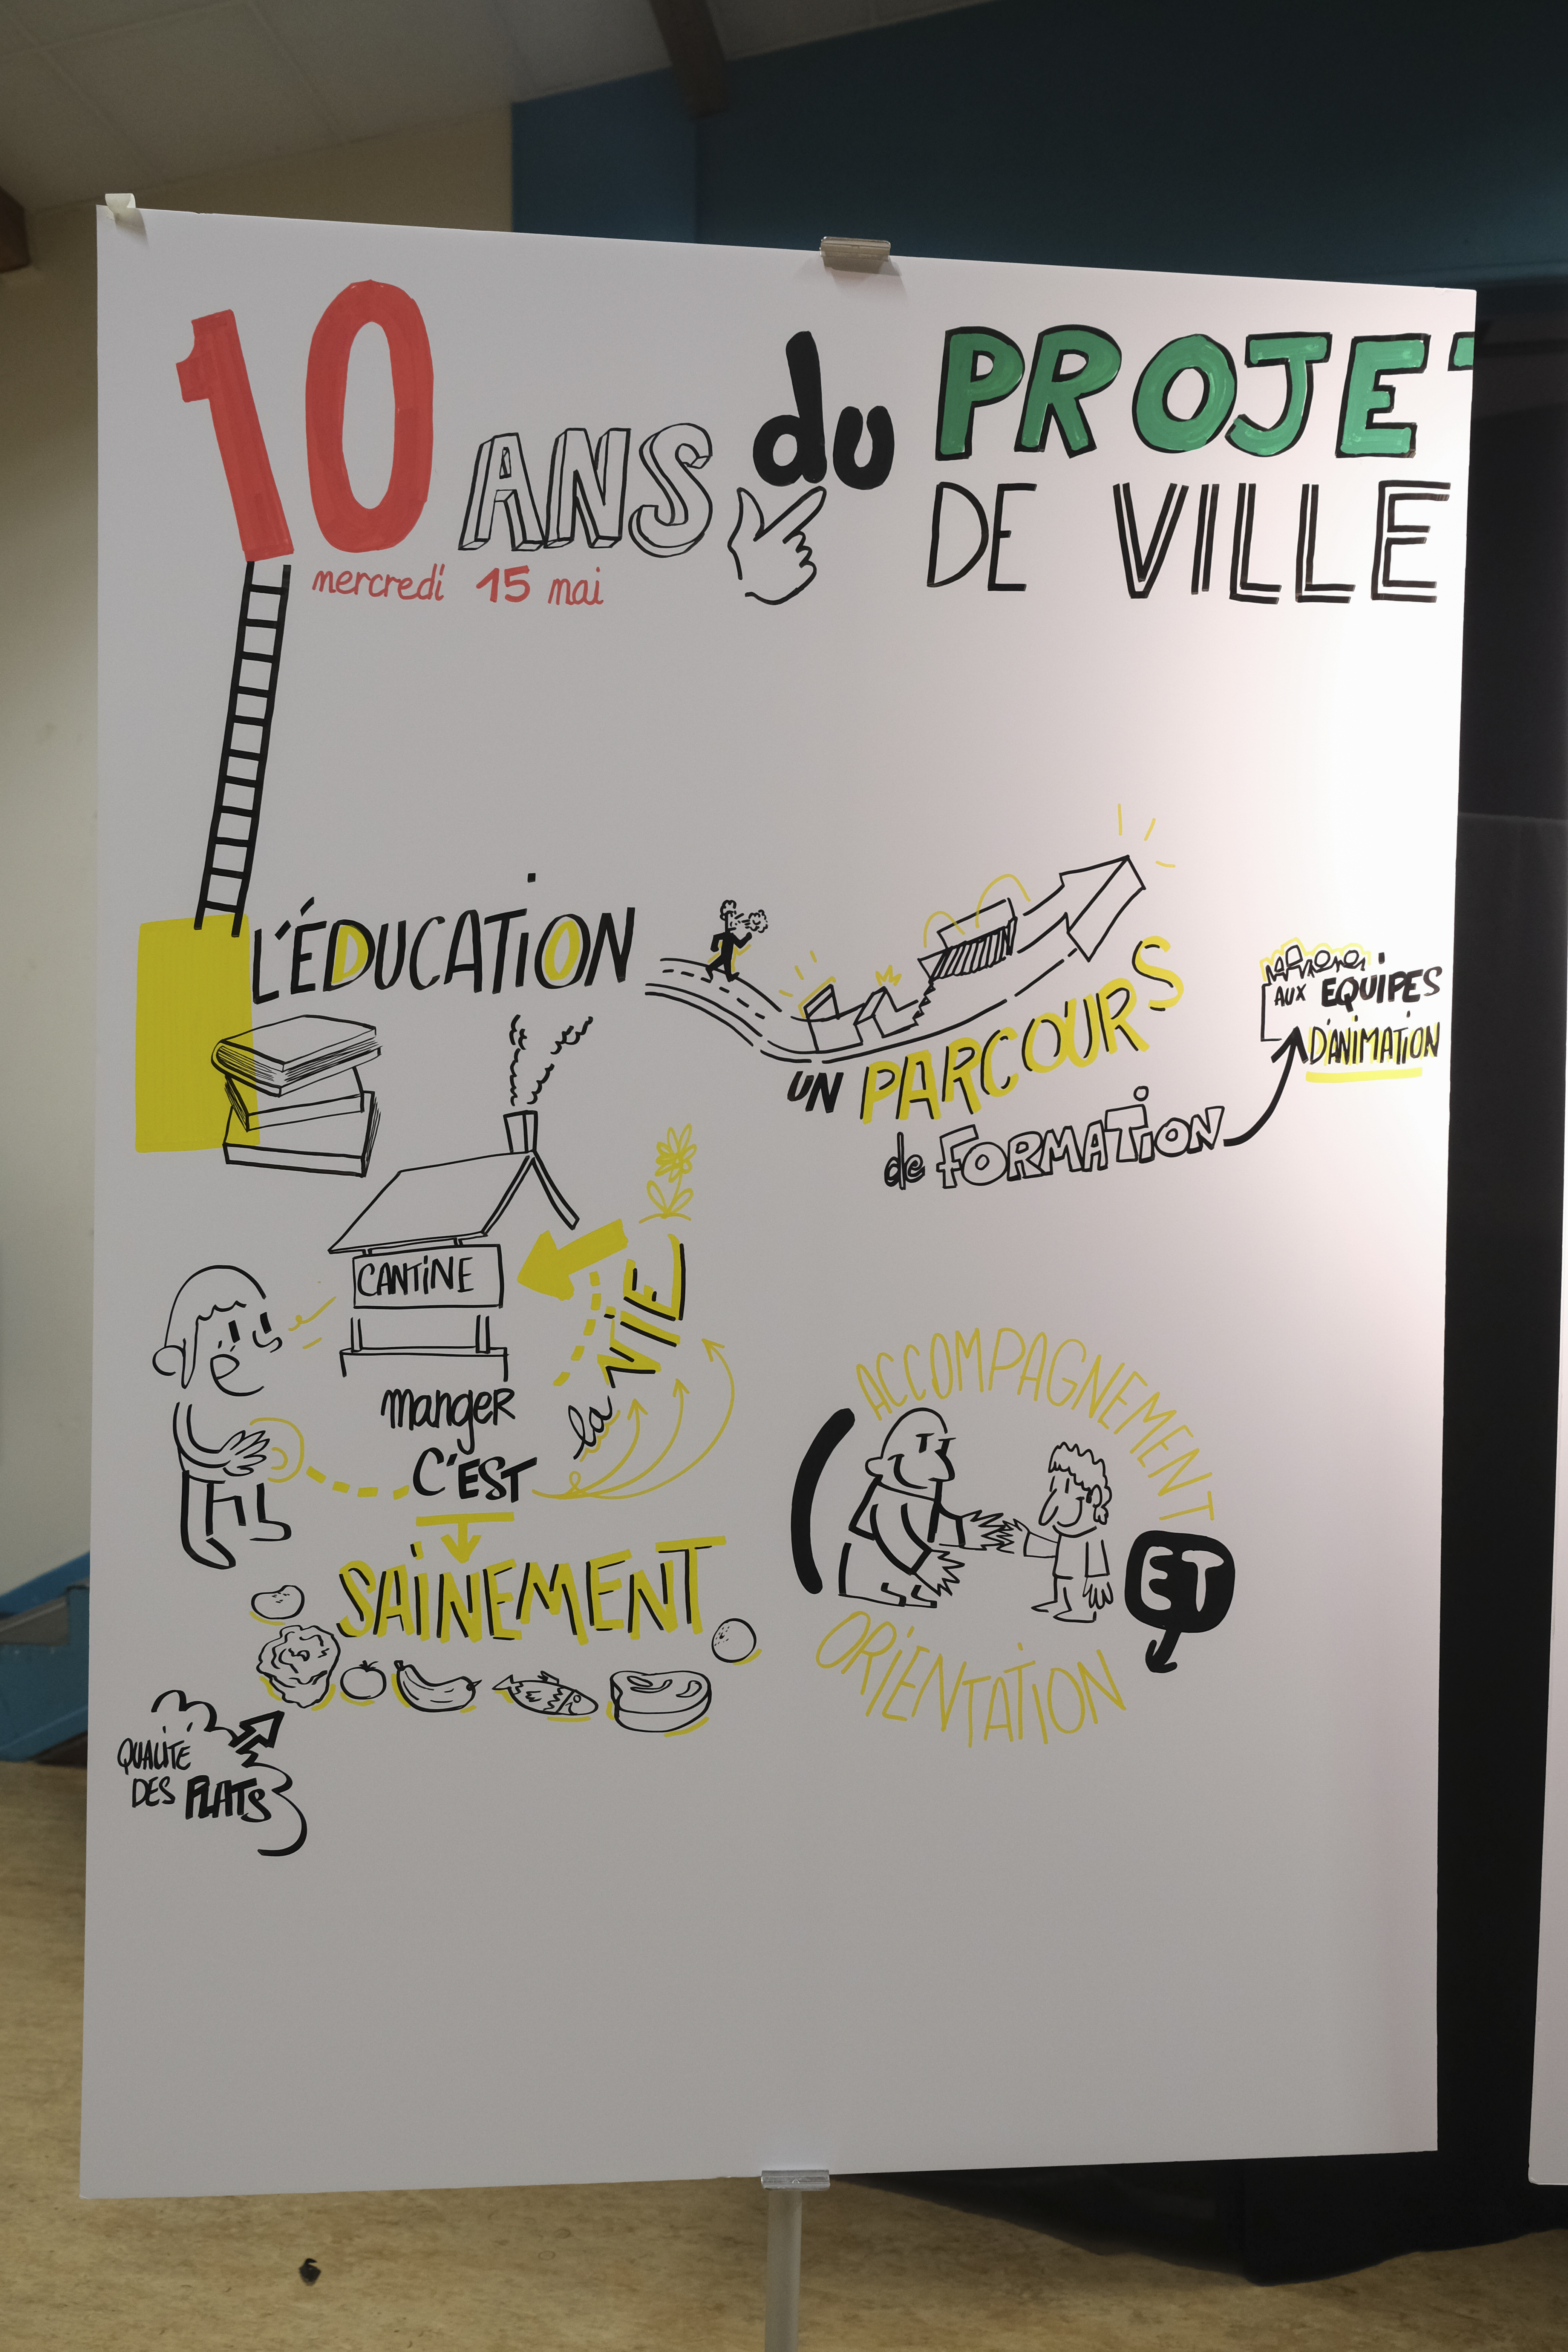 10 ANS du PROJET
DE VILLE
mercredi 15 mai
L'ÉDUCATION
UN PARCOURS
de FORMATION
AUX EQUIPES
D'ANIMATION
CANTINE
manger
C'EST
la VIE
SAINEMENT
QUALITE
DES PLATS
ACCOMPAGNEMENT
ET
ORIENTATION